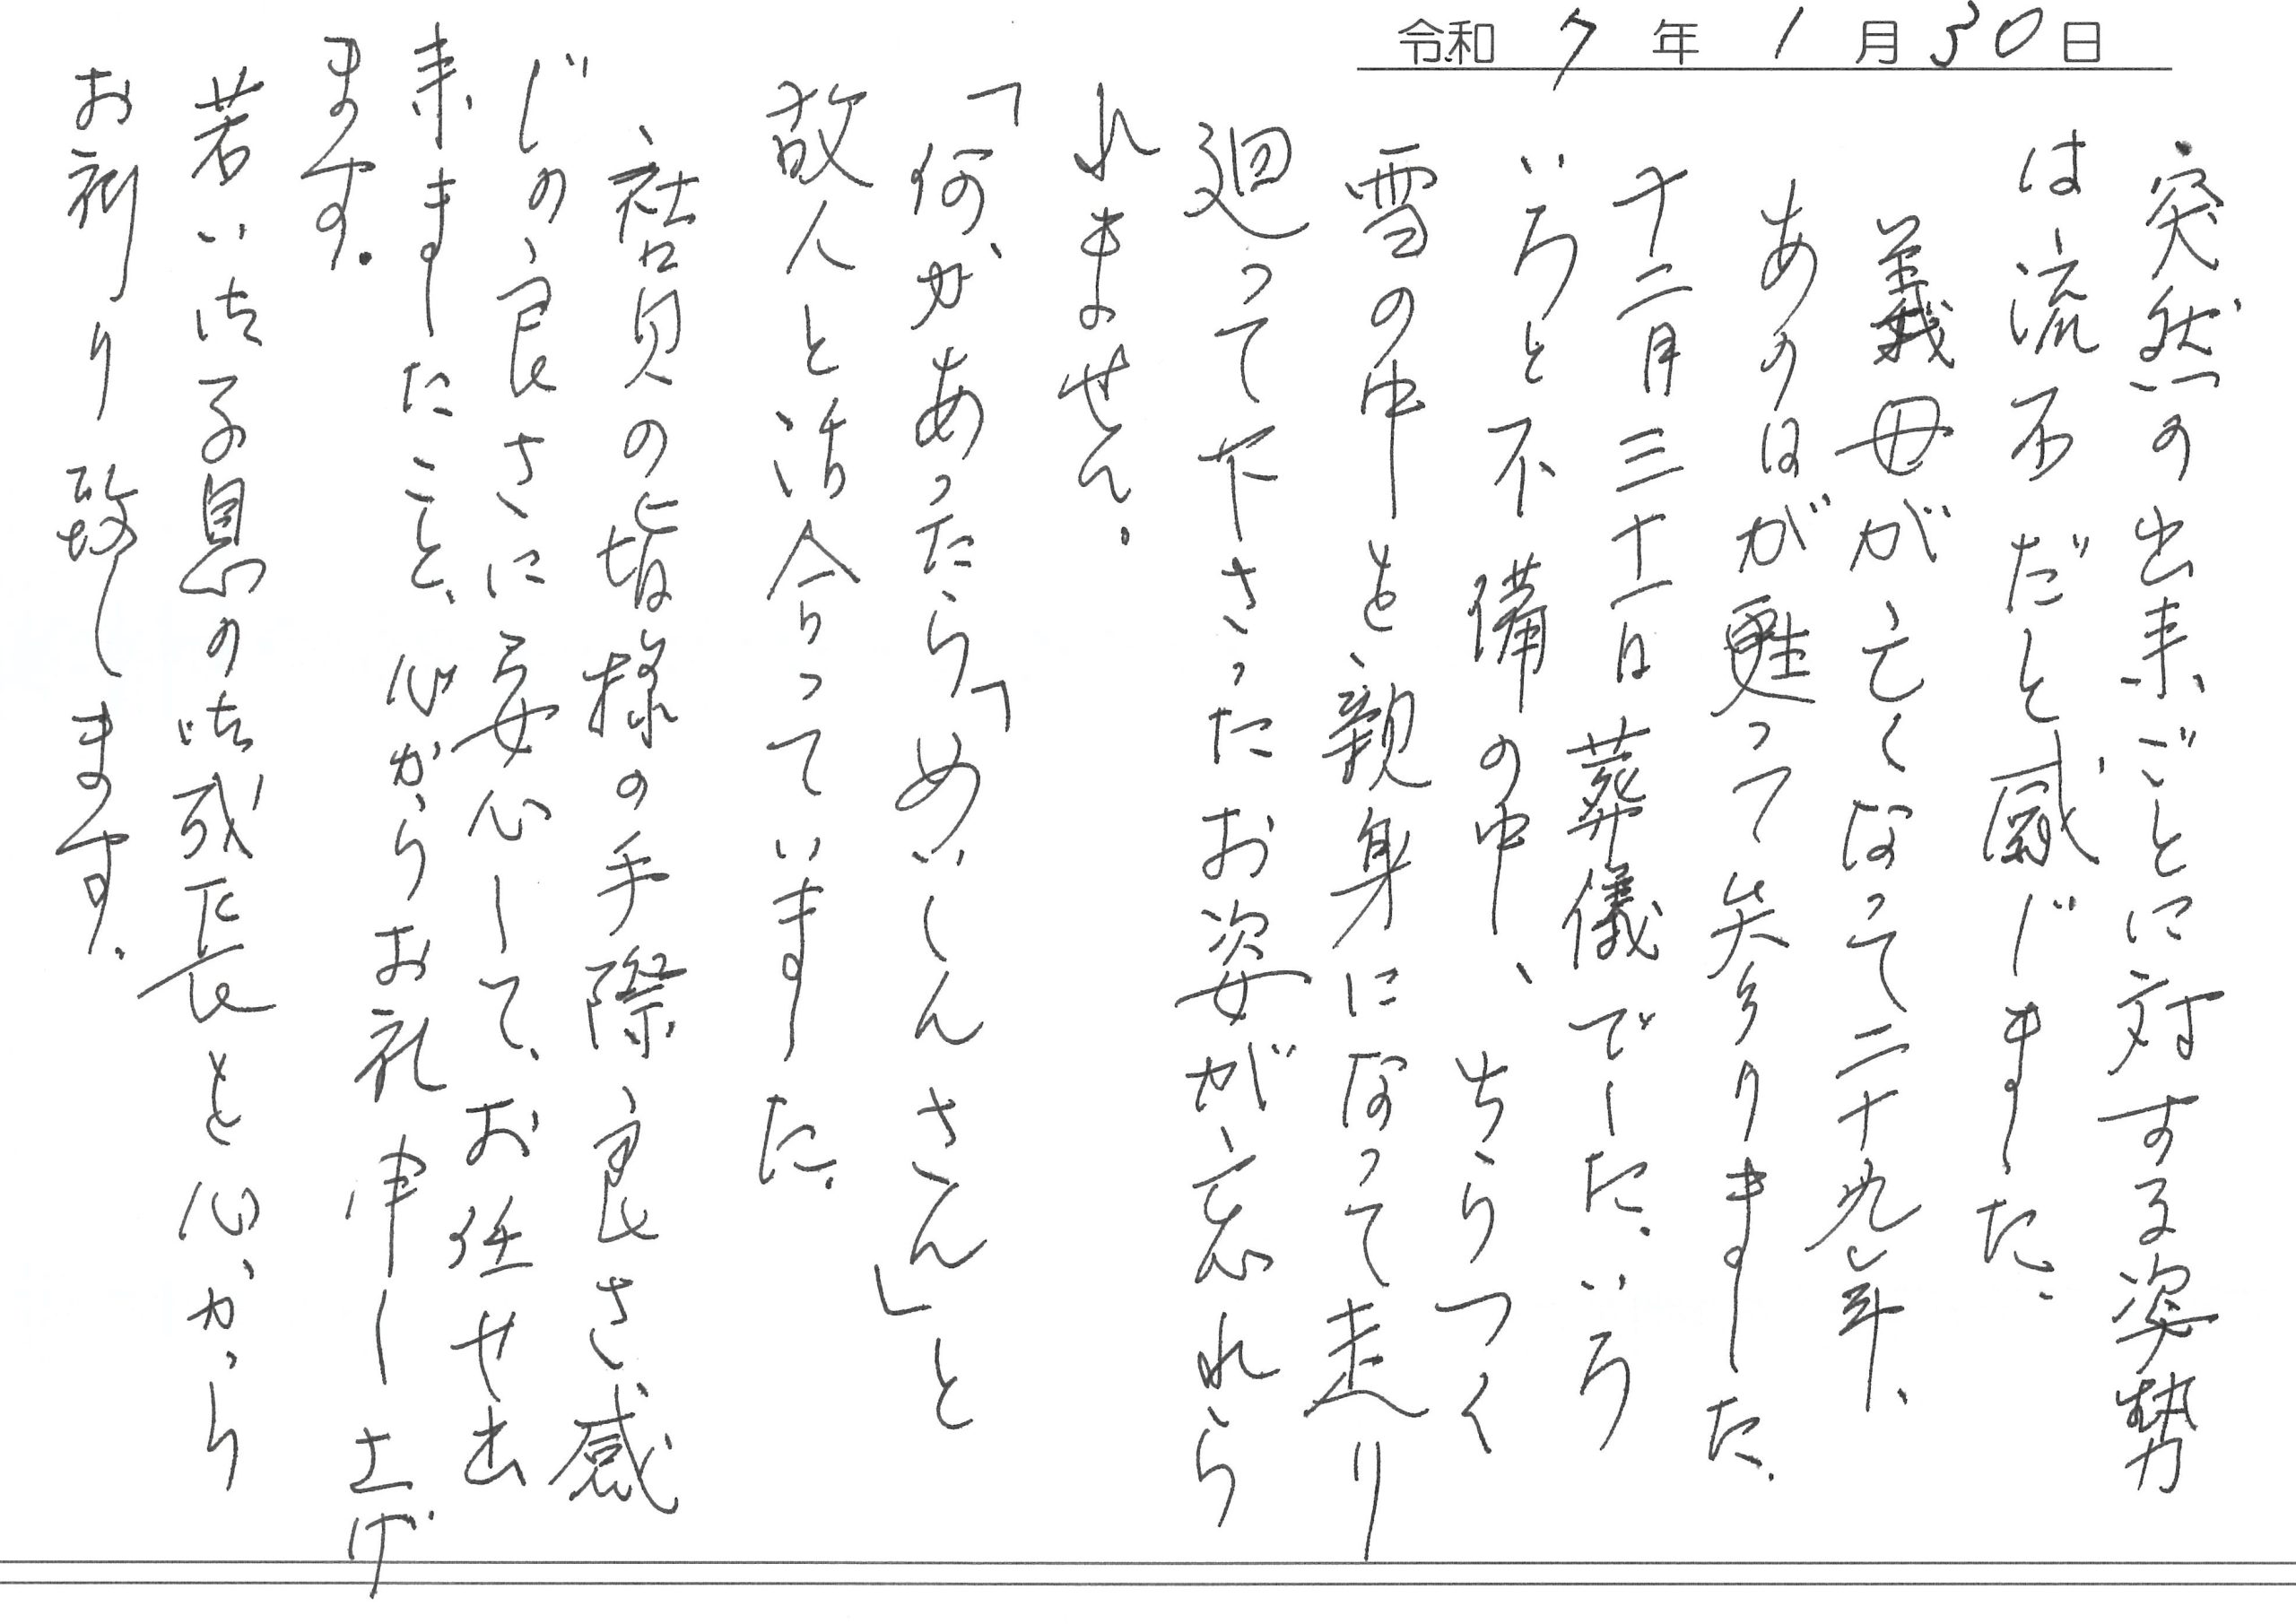 令和 7 年 1 月 30 日
突然の出来ごとに対する姿勢
は流石だと感じました。
義母が亡くなって二十九年、
あの日が甦って参りました。
十二月三十一日葬儀でした。いろ
いろと不備の中、ちらつく
雪の中を親身になって走り
廻って下さったお姿が忘れら
れません。
「何かあったら「めいしんさん」と
故人と話合っていました。
社員の皆様の手際良さ感
じの良さに安心して、お任せ出
来ましたこと、心からお礼申し上げ
ます。
若い御子息の御成長を心から
お祈り致します。